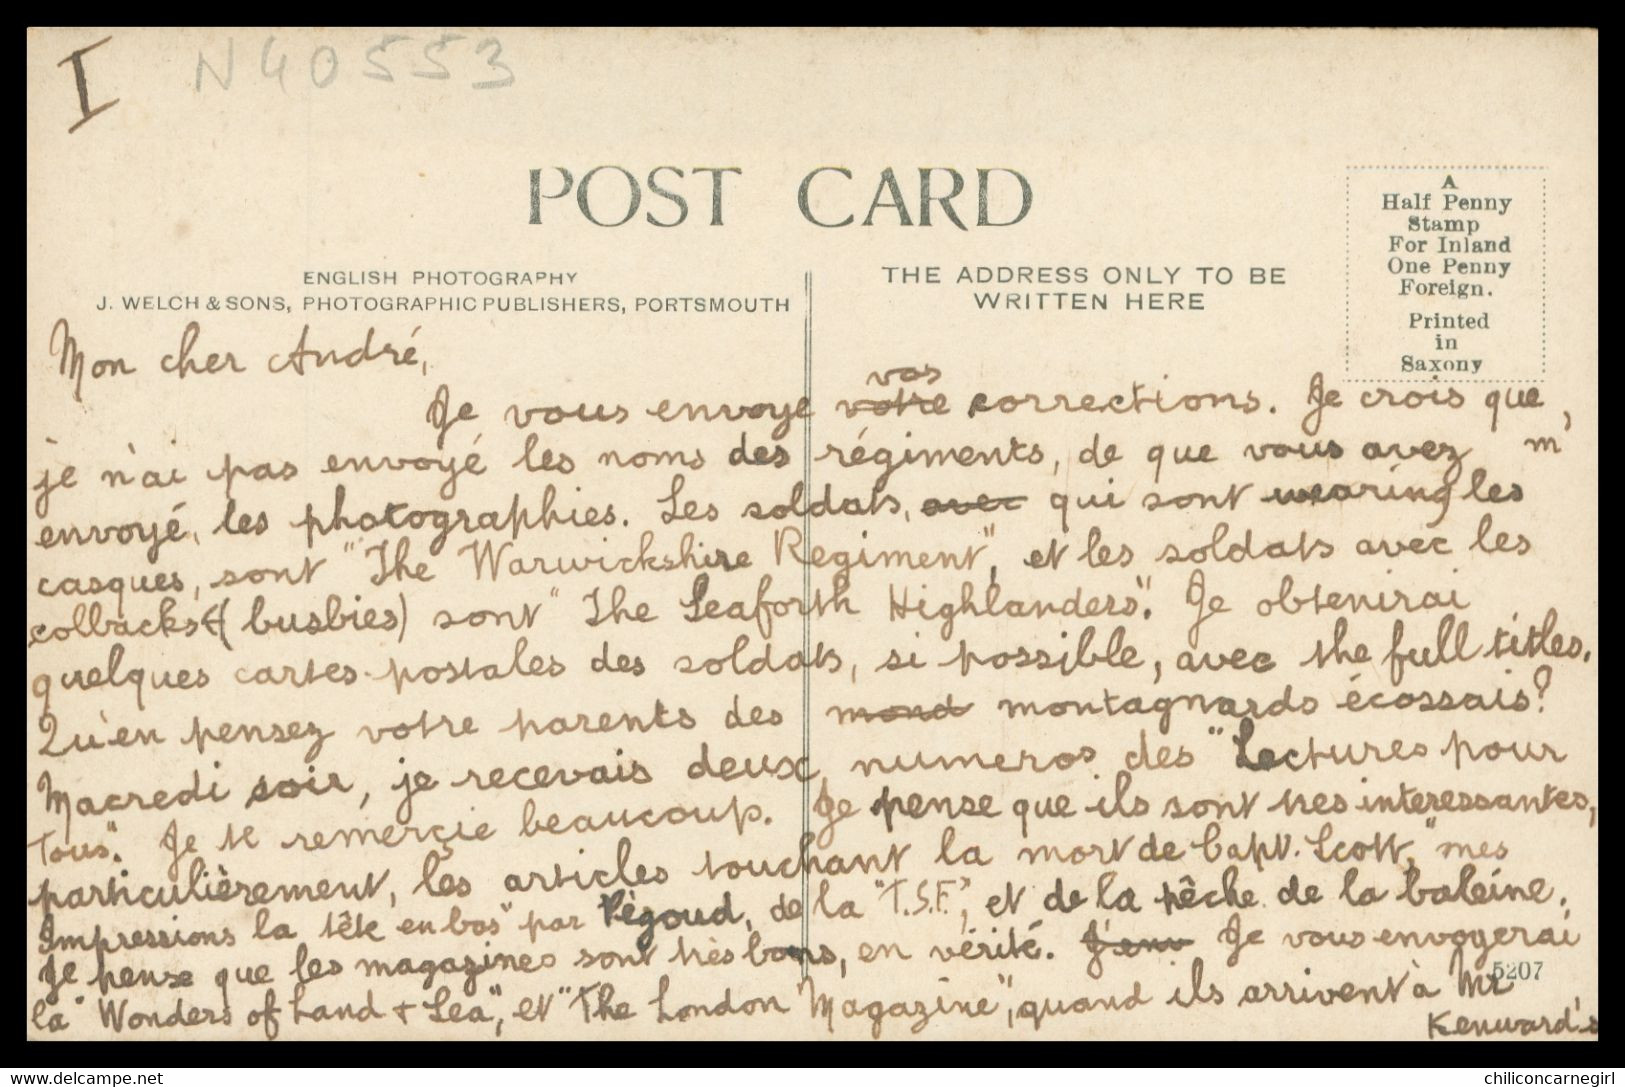 I N40553
POST CARD
A
Half Penny
Stamp
For Inland
One Penny
Foreign.
Printed
in
Saxony
ENGLISH PHOTOGRAPHY
J. WELCH & SONS, PHOTOGRAPHIC PUBLISHERS, PORTSMOUTH
THE ADDRESS ONLY TO BE
WRITTEN HERE
Mon cher André,
vos
Je vous envoye votre corrections. Je crois que,
je n'ai pas envoyé les noms des régiments, de que vous avez m'
envoyé, les photographies. Les soldats, avec qui sont wearing les
casques, sont "The Warwickshire Regiment", et les soldats avec les
colbacks (busbies) sont "The Seaforth Highlanders". Je obtenirai
quelques cartes-postales des soldats, si possible, avec the full titles.
Qu'en pensez votre parents des mond montagnards écossais?
Macredi soir, je recevais deux numeros des "Lectures pour
Tous". Je te remerçie beaucoup. Je pense que ils sont tres interessantes,
particulièrement, les articles touchant la mort de Capt. Scott, "mes
Impressions la tête en bas" par Pégoud, de la "T.S.F.", et de la pêche de la baleine.
Je pense que les magazines sont très bons, en vérité. J'env Je vous envoyerai
la "Wonders of Land & Sea", et "The London Magazine", quand ils arrivent à Mr
5207
Kenward's
chiliconcarnegirl
https://www.delcampe.net